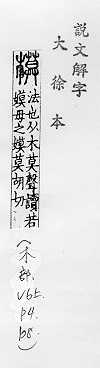 説文解字
大徐本
模 法也从木莫聲讀若
嫫母之嫫莫胡切
(木部. V6上. p4. b8.)